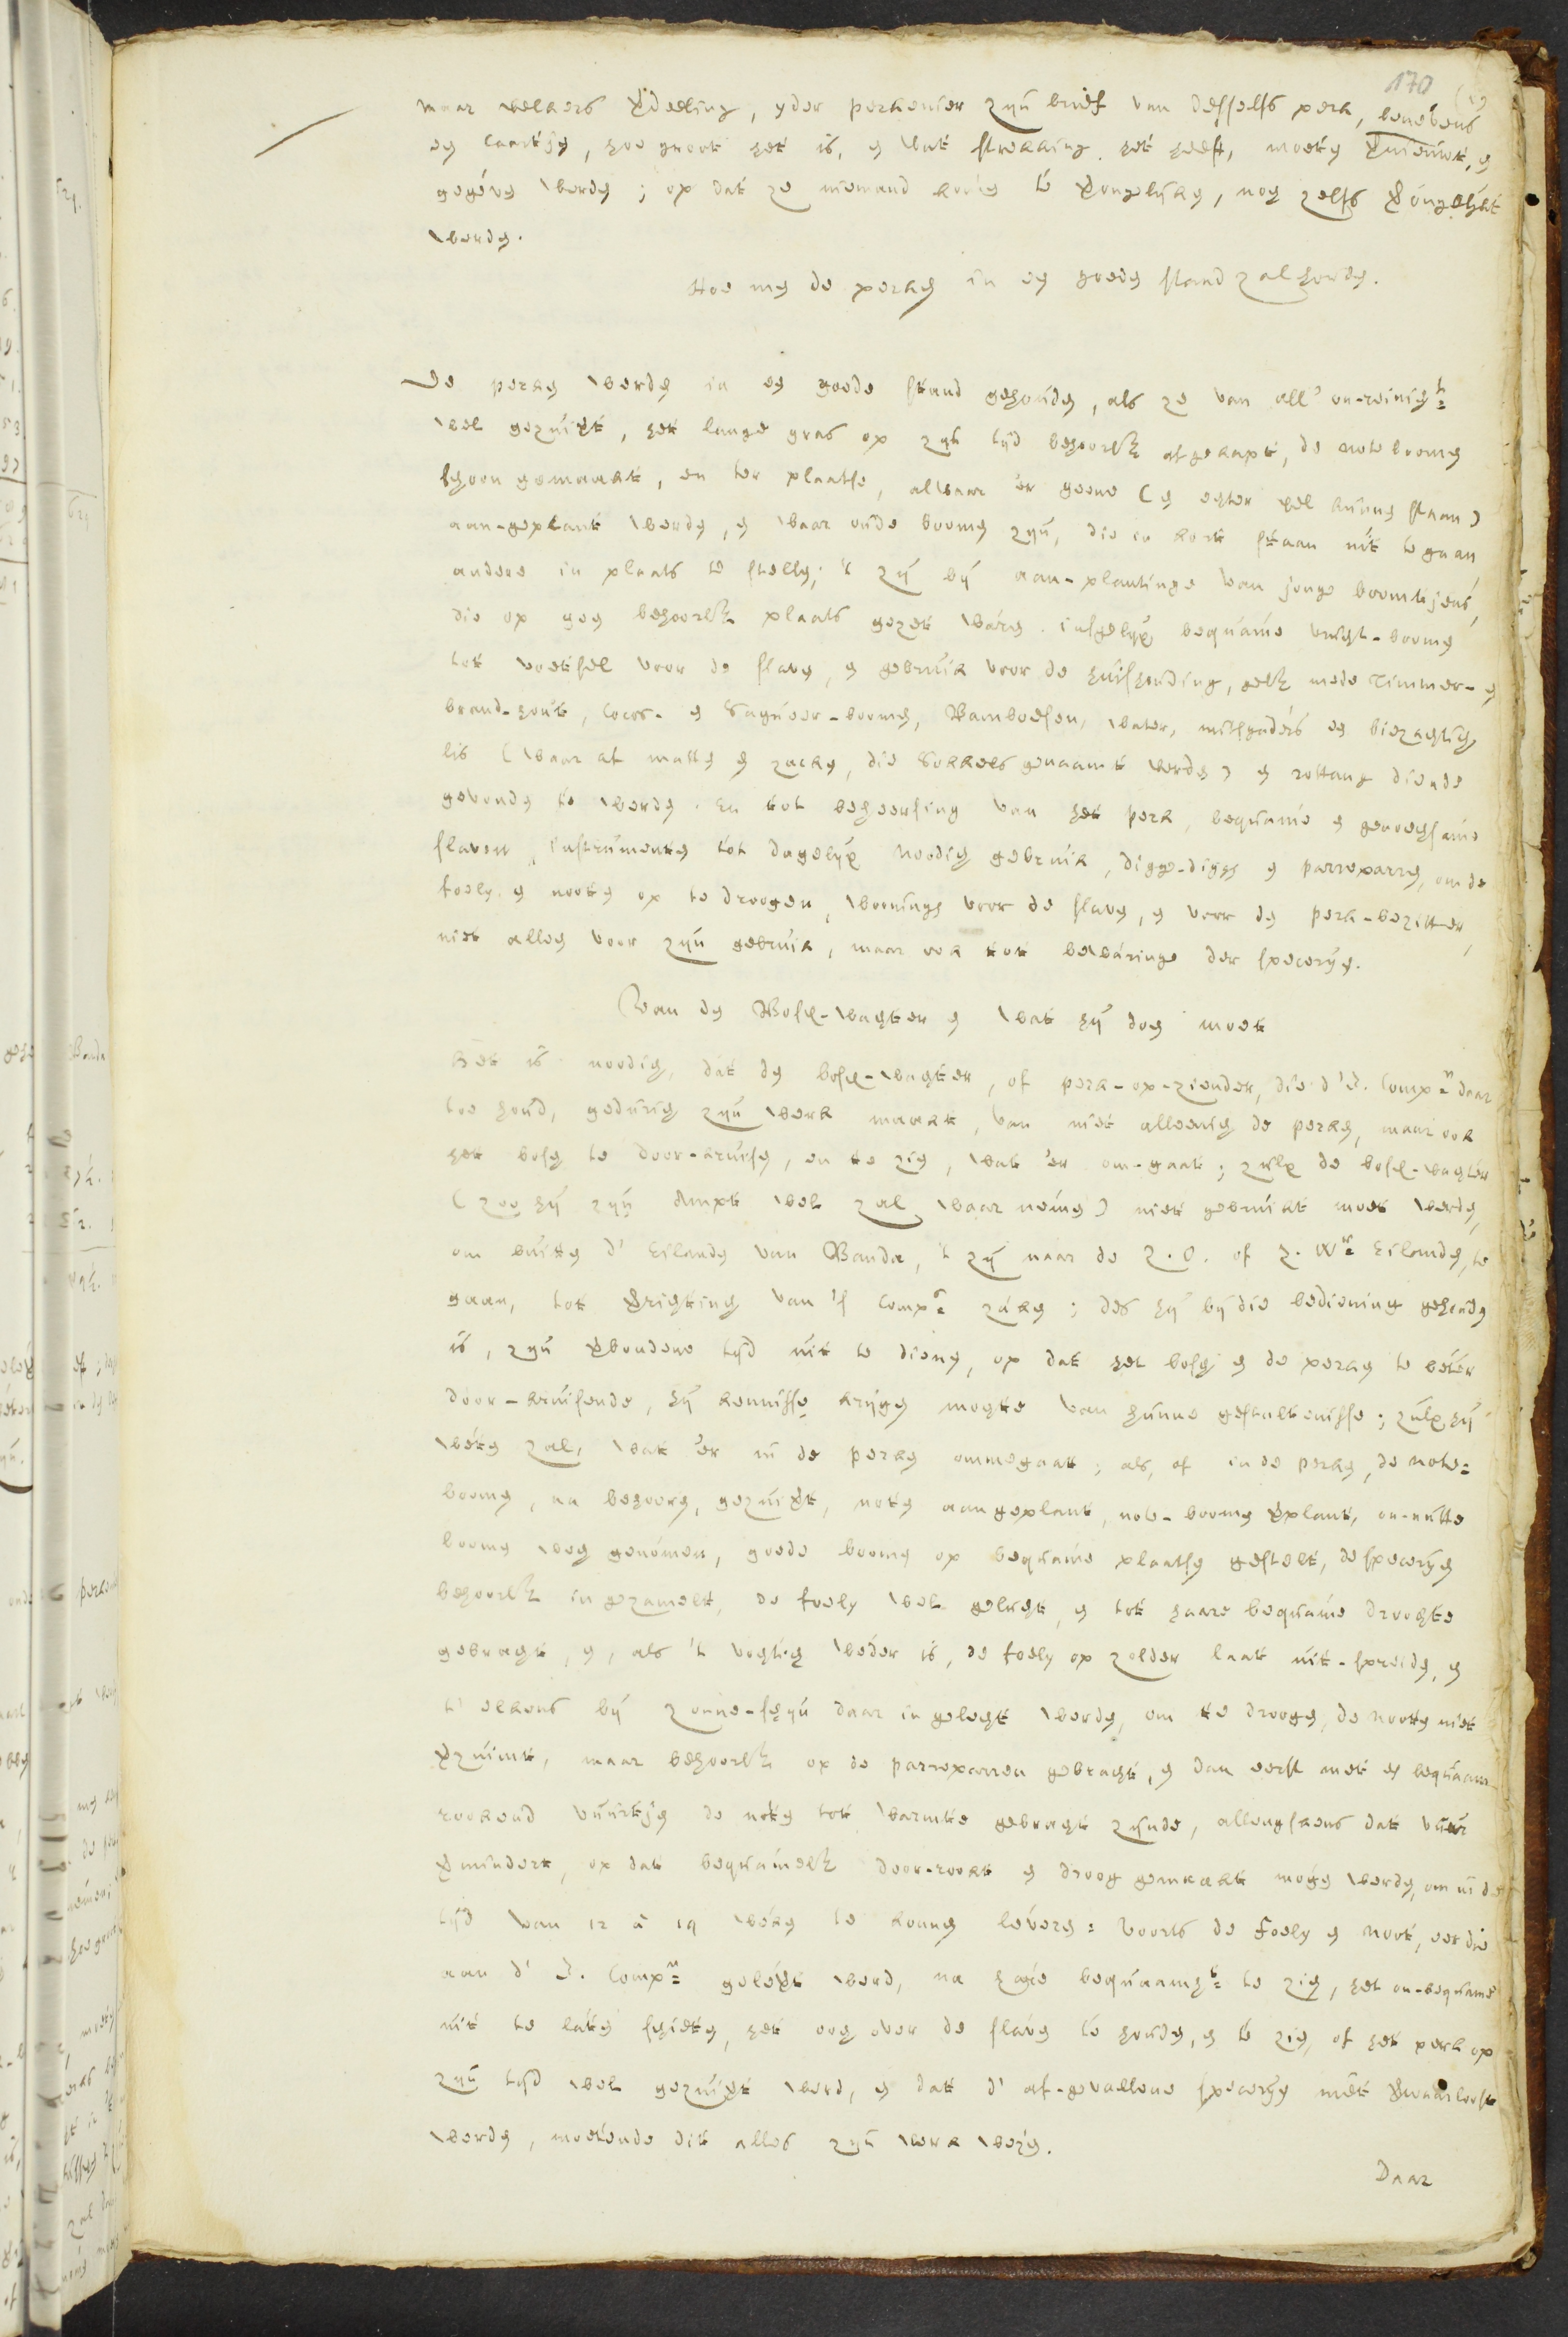 170
naar welkers verdeeling, yder perkenier zyn brief van desselfs perk, benevens
een caartje, hoe groot het is, en wat strekking het heeft, moeten vernieuwt, en
gegeven werden; op dat ze niemand konne te verongelyken, nog zelfs verongelykt
werden.
Hoe men de perken in een goeden stand zal houden.
De perken werden in een goede stand gehouden, als ze van all' on-reinight.
wel gezuivert, het lange gras op zyn tyd behoorlyk afgekapt, de noteboomen
schoon gemaakt, en ter plaatse, alwaar 'er geene (en echter wel kunnen staan)
aan-geplant werden, en waar oude boomen zyn, die in kort staan uit te gaan
andere in plaats te stellen; 't zy by aan-plantinge van jonge boomtjens,
die op geen behoorlyk plaats gezet waren. insgelyx bequame vrught-boomen
tot voetsel voor de slaven, en gebruik voor de huishouding, gelyk mede Timmer- en
brand-hout, cocos- en Sagueer-boomen, Bamboesen, water, mitsgaders een biezachtig
lis (waar af matten en zacken, die Sokkels genaamt werden) en rottang diende
gevonden te werden. En tot beheersing van het perk, bequame en genoegsame
slaven, instrumenten tot dagelyx noodig gebruik, digge-diggen en parreparren, om de
foely en nooten op te droogen, wooningen voor de slaven, en voor den perk-bezitter,
niet alleen voor zyn gebruik, maar ook tot bewaringe der speceryen.
Van den Bosch-wachter en wat hy doen moet
Het is noodig, dat den bosch-wachter, of perk-op-ziender, die d'E. Compn. daar
toe houd, gedurig zyn werk maakt, van niet alleenig de perken, maar ook
het bosch te door-kruisen, en te zien, wat 'er om-gaat; zulx de bosch-wachter
(zoo hy zyn Ampt wel zal waar nemen) niet gebruikt moet werden,
om buiten d' Eilanden van Banda, 't zy naar de Z.O. of Z. Wr. Eilanden, te
gaan, tot verrichting van 's Comps. zaken; des hy by die bediening gehouden
is, zyn verbondene tyd uit te dienen, op dat het bosch en de perken te beter
door-kruisende, hy kennisse krygen mochte van hunne gestaltenisse; zulx hy
weten zal, wat 'er in de perken ommegaat; als, of in de perken, de note-
boomen, na behooren, gezuivert, noten aangeplant, note-boomen verplant, on-nutte
boomen weg genomen, goede boomen op bequame plaatsen gestelt, de specerijen
behoorlyk ingezamelt, de foely wel gelucht, en tot haare bequame droogte
gebragt, en, als 't vochtig weder is, de foely op zolder laat uit-spreiden, en
t' elkens by zonne-schyn daar in gelegt werden, om te droogen, de nooten niet
verzuimt, maar behoorlyk op de parreparren gebracht, en dan eerst met een bequaam
rookend vuurtjen de noten tot warmte gebragt zynde, allengskens dat vuur
vermindert, op dat bequamelyk door-rookt en droog gemaakt mogen werden, om in de
tyd van 12 à 14 weken te konnen leveren: Voorts de Foely en Noot, eer die
aan d' E. Compn. gelevert werd, na hare bequaamht. te zien, het on-bequame
uit te laten schieten, het oog over de slaven te houden, en te zien, of het perk op
zyn tyd wel gezuivert werd, en dat d' af-gevallene specerijen niet verwaarloost
werden, moetende dit alles zyn werk wezen.
Daar